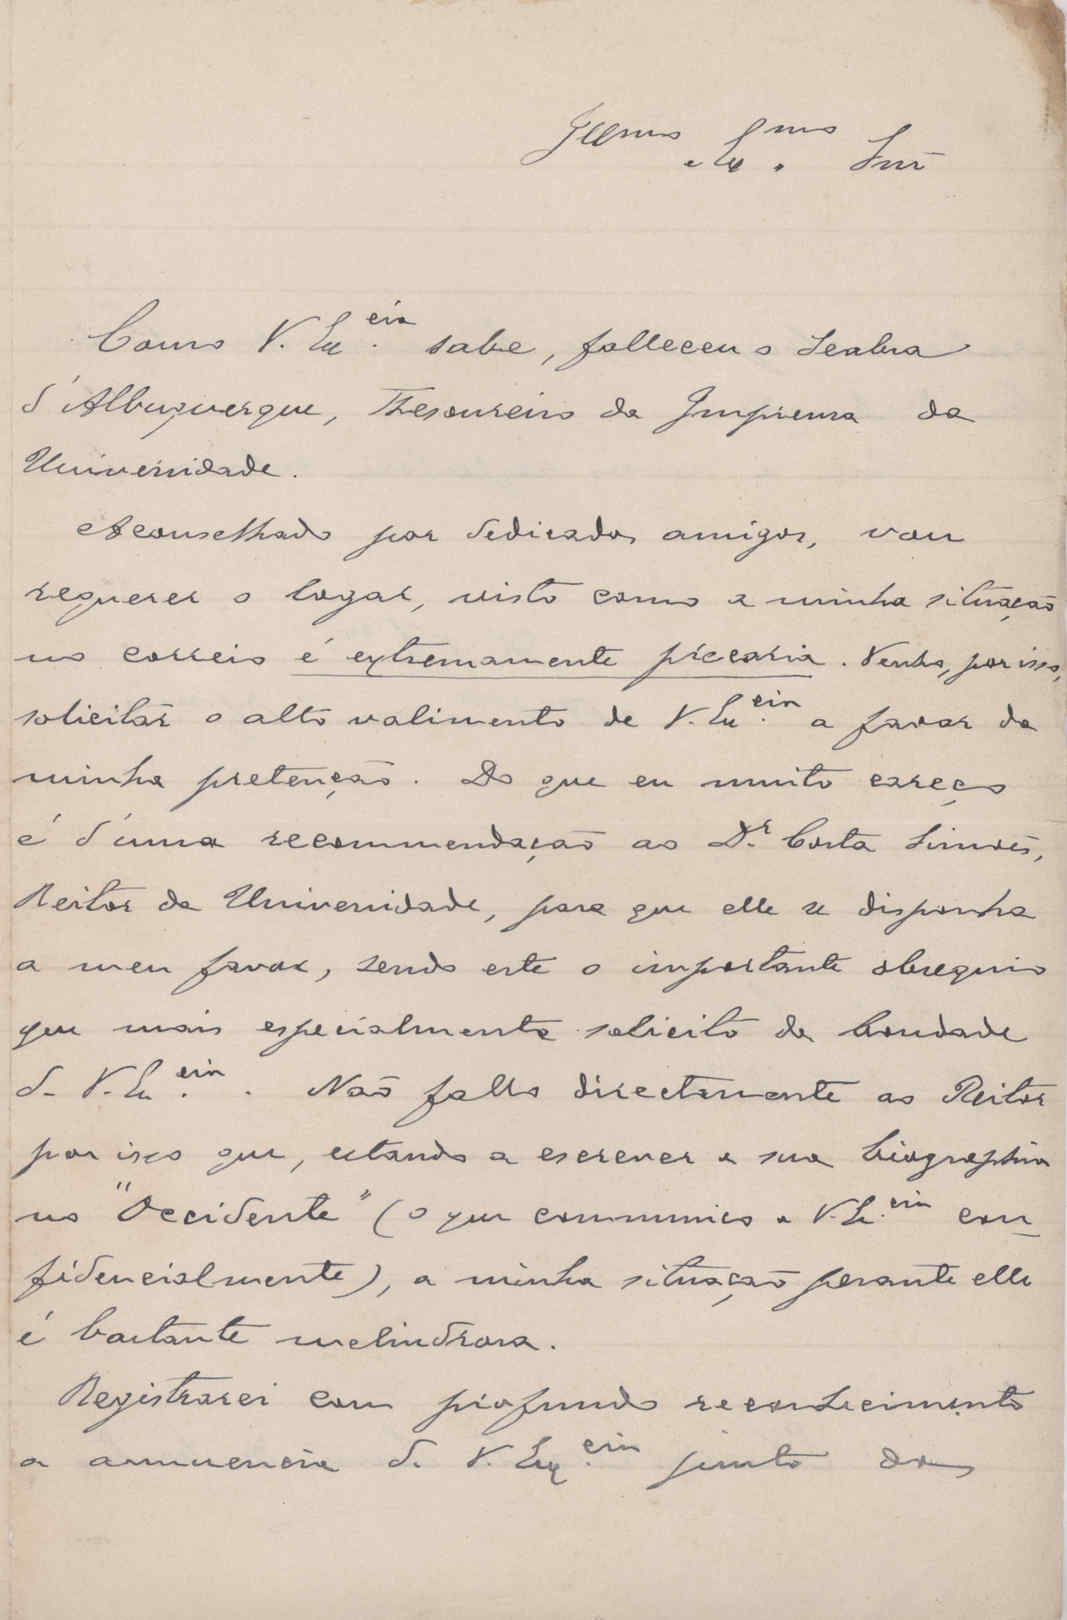 Illmo e Ex.mo Snr
Como V. Ex.cia sabe, falleceu o Seabra
d'Albuquerque, Thesoureiro da Imprensa da
Universidade.
Aconselhado por dedicados amigos, vou
requerer o logar, visto como a minha situação
no correio é extremamente precaria. Venho, por isso,
solicitar o alto valimento de V. Ex.cia a favor da
minha pretenção. Do que eu muito careço
é d'uma recommendação ao Dr. Costa Simões,
Reitor da Universidade, para que elle se disponha
a meu favor, sendo este o importante obsequio
que mais especialmente solicito da bondade
de V. Ex.cia. Não fallo directamente ao Reitor
por isso que, estando a escrever a sua biographia
no "Occidente" (o que communico a V. Ex.cia con-
fidencialmente), a minha situação perante elle
é bastante melindrosa.
Registrarei com profundo reconhecimento
a annuencia de V. Ex.cia junto do